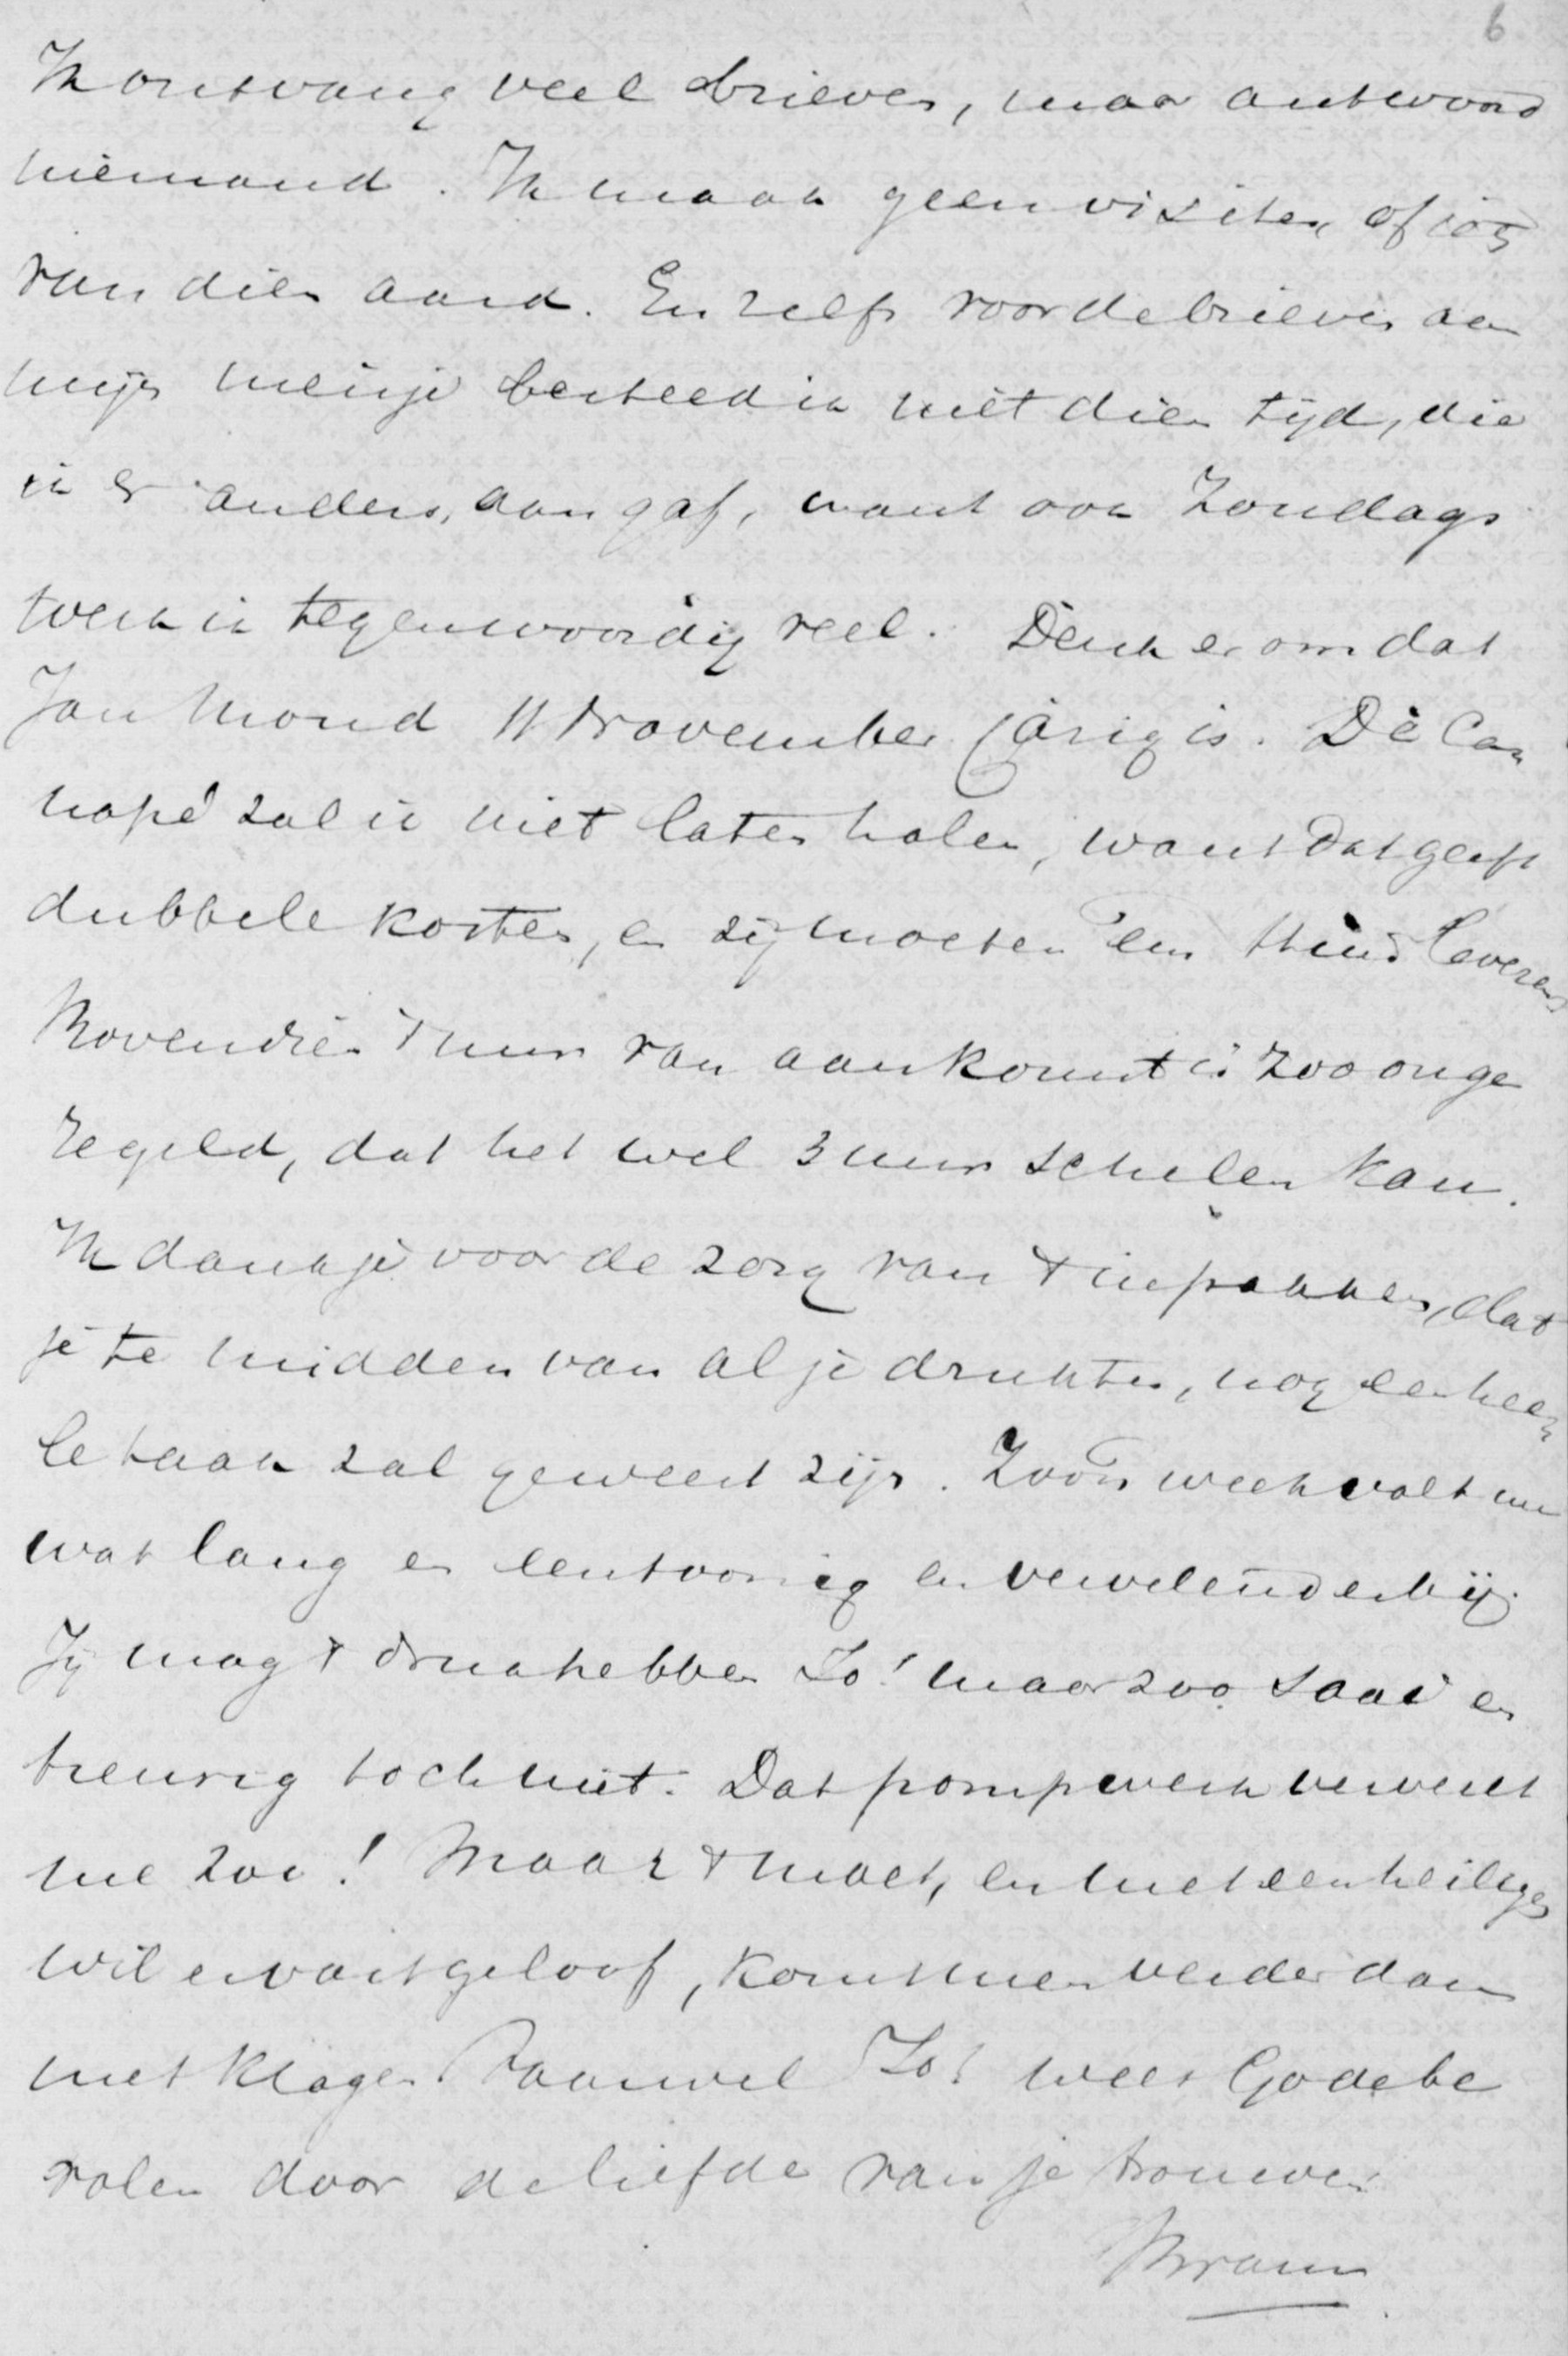 6
Ik ontvang veel brieven, maar antwoord
niemand. Ik maak geen visites, of iets
van dien aard. En zelfs voor de brieven aan
mijn meisje besteed ik niet dien tijd, die
ik er anders, aan gaf, want ook Zondags
werk ik tegenwoordig veel. Denk er om dat
Jan Mond 11 November jarig is. De Ca
napé zal ik niet laten halen, want dat geeft
dubbele kosten, en zij moeten 'em thuis leveren
Bovendien 't uur van aankomst is zoo onge
regeld, dat het wel 3 uur schelen kan.
Ik dank je voor de zorg van 't inpakken, dat
je te midden van al je drukten, nog een hee
le taak zal geweest zijn. Zoo'n week valt me
wat lang en eentonig en vervelend er bij.
Jij mag 't druk hebben Jo! maar zoo saai en
treurig toch niet. Dat pompwerk verveelt
me zoo! Maar 't moet, en met een heilige
wil en vast geloof, komt men verder dan
met klagen. Vaarwel Jo! wees Gode be
volen door de liefde van je trouwen
Bram